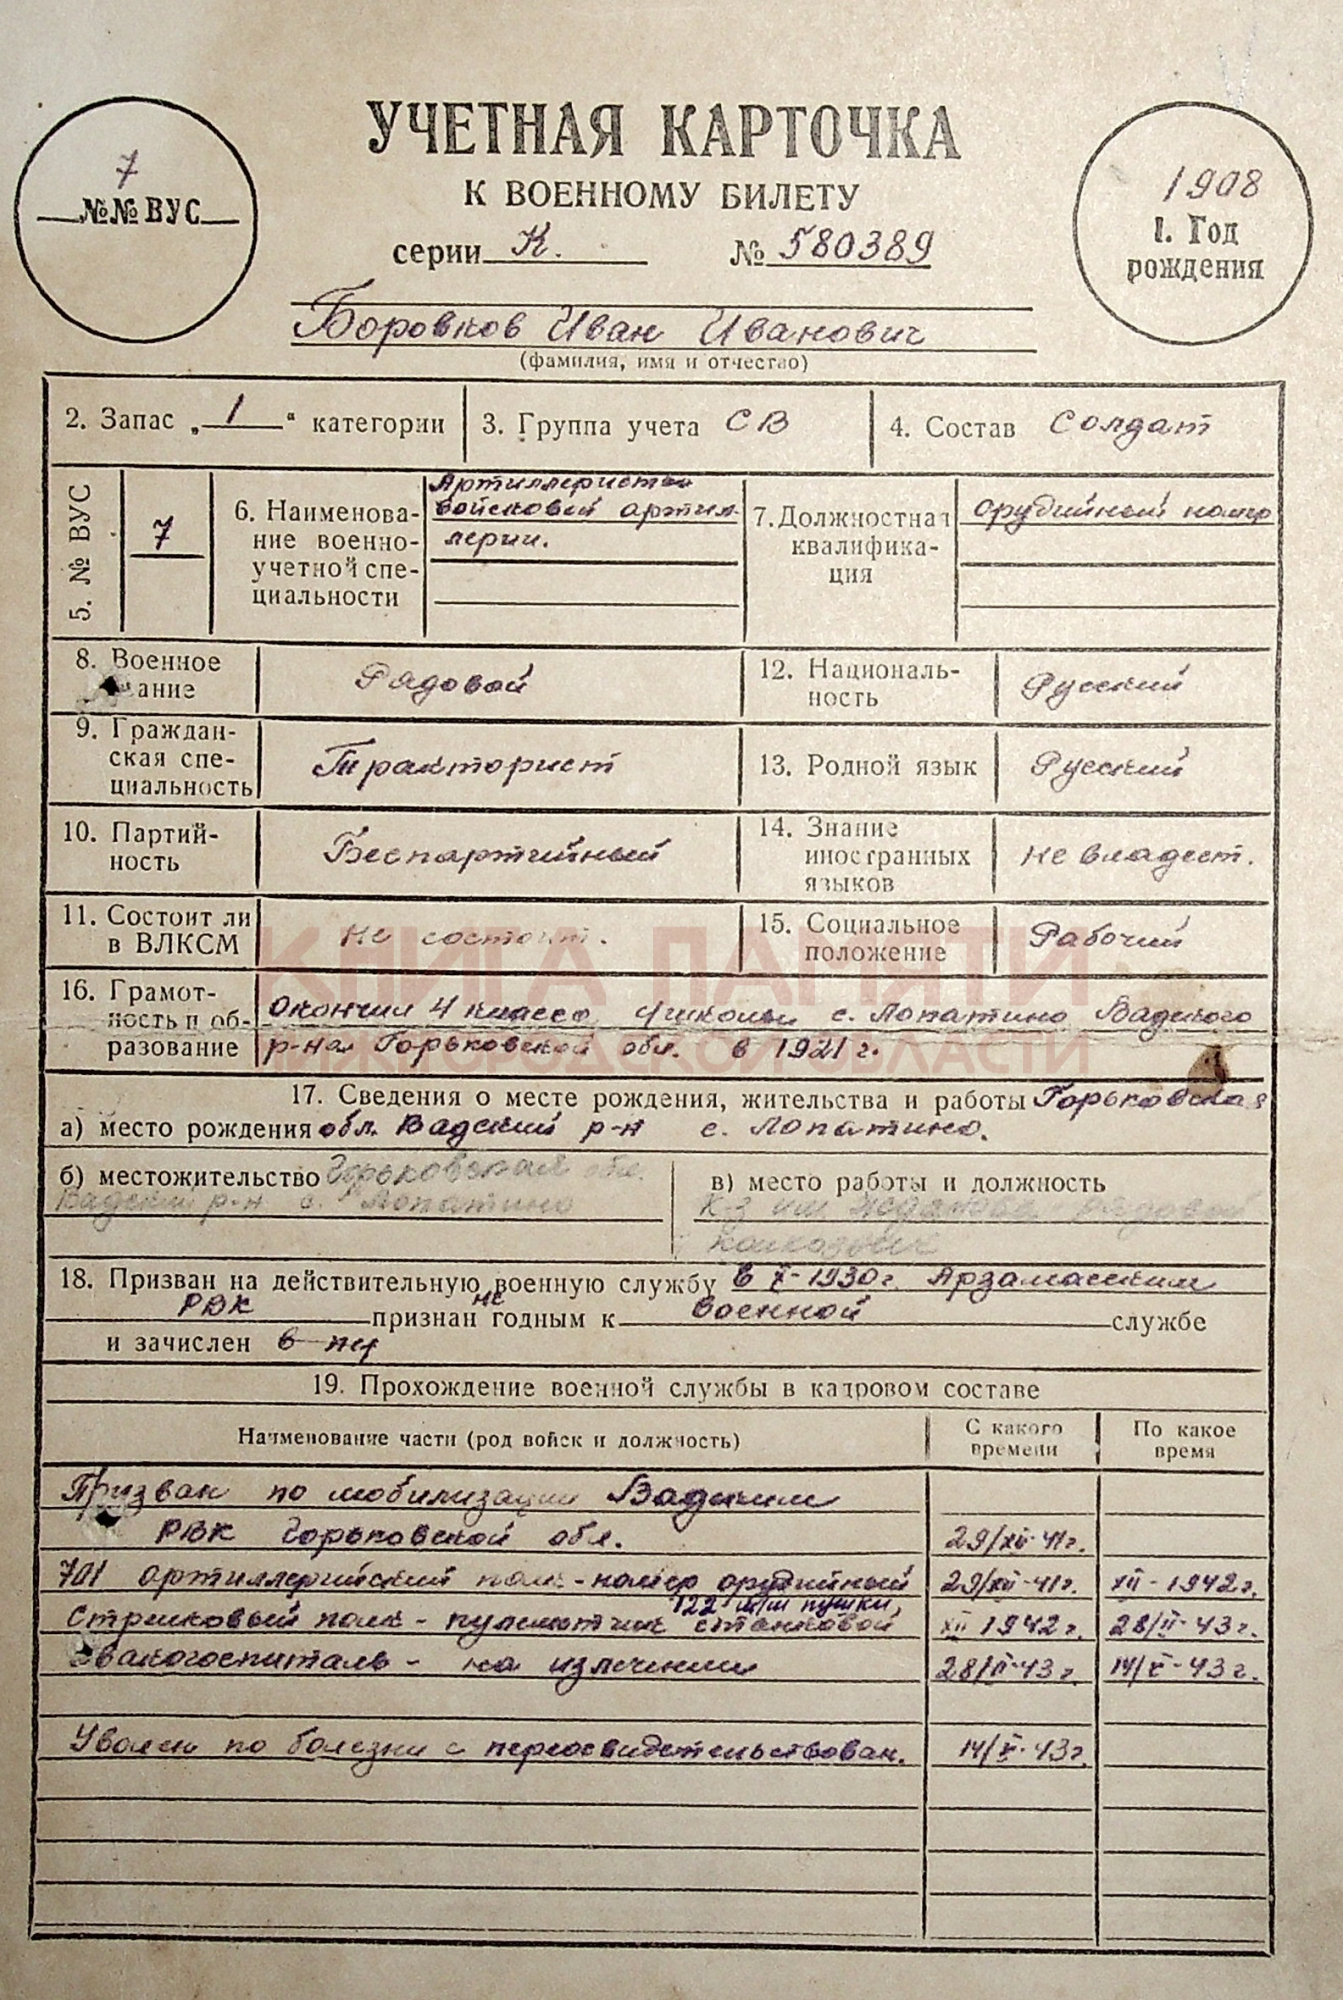 УЧЕТНАЯ КАРТОЧКА
К ВОЕННОМУ БИЛЕТУ
серии К. № 580389
7
№№ ВУС
1908
1. Год
рождения
Боровков Иван Иванович
(фамилия, имя и отчество)
2. Запас „1“ категории
3. Группа учета СВ
4. Состав Солдат
5. № ВУС
7
6. Наименова-
ние военно-
учетной спе-
циальности
Артиллеристы
войсковой артил-
лерии.
7. Должностная
квалифика-
ция
орудийный номер
8. Военное
звание
Рядовой
12. Националь-
ность
Русский
9. Граждан-
ская спе-
циальность
Тракторист
13. Родной язык
Русский
10. Партий-
ность
Беспартийный
14. Знание
иностранных
языков
не владеет.
11. Состоит ли
в ВЛКСМ
Не состоит.
15. Социальное
положение
Рабочий
КНИГА ПАМЯТИ
НИЖЕГОРОДСКОЙ ОБЛАСТИ
16. Грамот-
ность и об-
разование
Окончил 4 класса школы с. Лопатино Вадского
р-на Горьковской обл. в 1921 г.
17. Сведения о месте рождения, жительства и работы Горьковская
а) место рождения обл. Вадский р-н с. Лопатино.
б) местожительство Горьковская обл.
Вадский р-н с. Лопатино
в) место работы и должность
К-з им Жданова рядовой
колхозник
18. Призван на действительную военную службу в X-1930 г. Арзамасским
РВК признан не годным к военной службе
и зачислен в
19. Прохождение военной службы в кадровом составе
Наименование части (род войск и должность)
С какого
времени
По какое
время
Призван по мобилизации Вадским
РВК Горьковской обл. 29/XII-41г.
701 артиллерийский полк - номер орудийный 29/XII-41г. XII-1942г.
122 м/м пушки,
Стрелковый полк - пулеметчик станковой XII 1942г. 28/II-43г.
Эвакогоспиталь - на излечении 28/II-43г. 14/X-43г.
Уволен по болезни с переосвидетельствован. 14/X-43г.